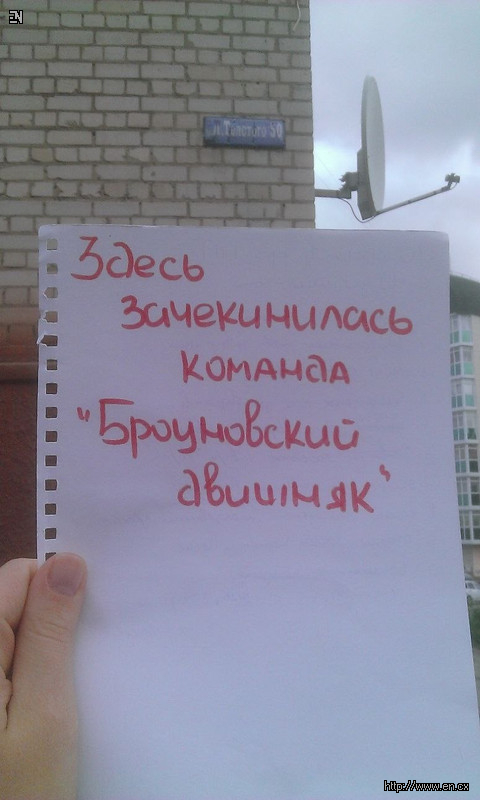 EN
ул. Толстого 50
Здесь
зачекинилась
команда
"Броуновский
двишняк"
http://www.en.cx